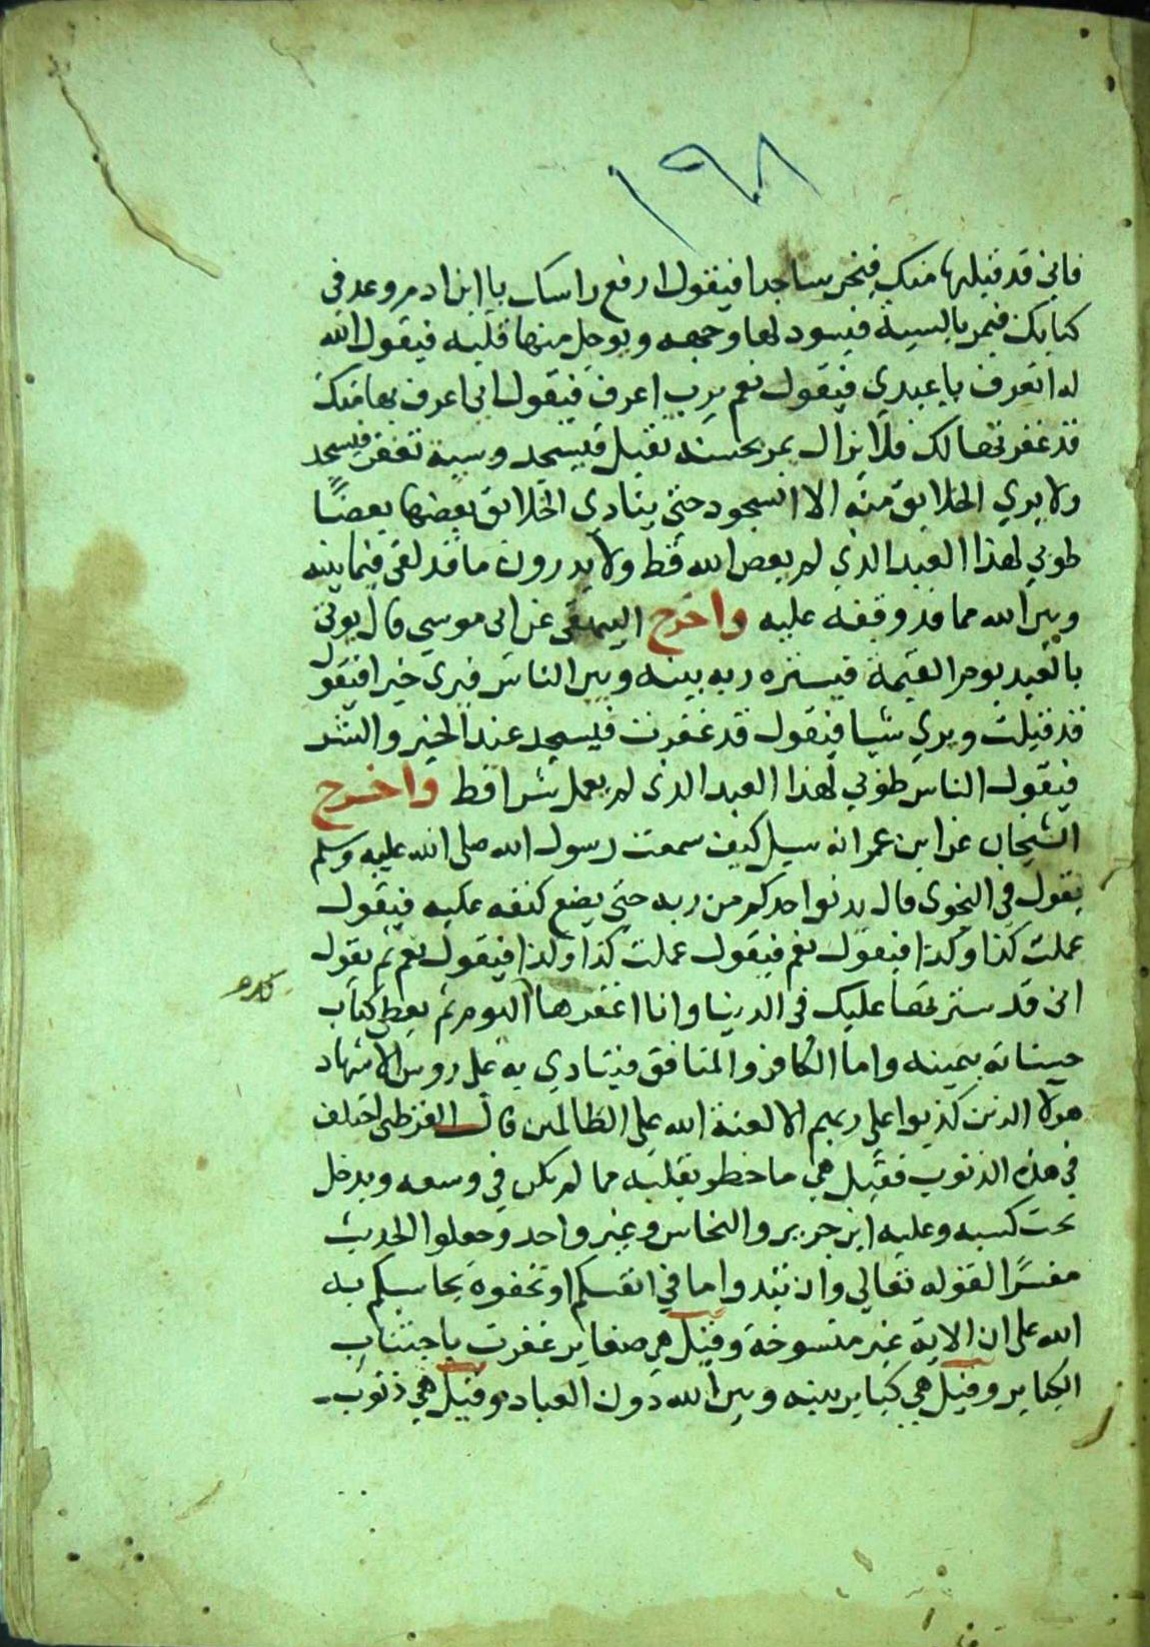 ١٩٨
فاني قد قبلتها منك فيخر ساجدا فيقول ارفع راسك يا ابن ادم وعد في
كتابك فيمر بالسيية فيسود لها وجهه ويوجل منها قلبه فيقول الله
له اتعرف يا عبدي فيقول نعم يرب اعرف فيقول اني اعرف بها منك
قد غفرتها لك فلا يزال يمر بحسنه تقبل فيسجد وسيية تغفر فيسجد
ولا يري الخلايق منه الا السجود حتي ينادي الخلايق بعضها بعضًا
طوبي لهذا العبد الذي لم يعص الله قط ولا يدرون ما قد لقي فيما بينه
وبين الله مما قد وقفه عليه واخرج البيهقي عن ابي موسي قال يوتي
بالعبد يوم القيمة فيستره ربه بينه وبين الناس فيري خيرا فيقول
قد قبلت ويري شيا فيقول قد غفرت فيسجد عند الخير والشر
فيقول الناس طوبي لهذا العبد الذي لم يعمل شرا قط واخرج
الشيخان عن ابن عمر انه سيل كيف سمعت رسول الله صلى الله عليه وسلم
يقول في النجوى قال يدنوا احدكم من ربه حتي يضع كنفه عليه فيقول
عملت كذا وكذا فيقول نعم فيقول عملت كذا وكذا فيقول نعم ثم يقول
اني قد سترتها عليك في الدنيا وانا اغفرها اليوم ثم يعطى كتاب
حسناته بيمينه واما الكافر والمنافق فينادي به على روس الاشهاد
هولا الذين كذبوا على ربهم الا لعنة الله على الظالمين قال القرطبي اختلف
في هذه الذنوب فقيل هي ما خطر بقلبه مما لم يكن في وسعه ويدخل
تحت كسبه وعليه ابن جرير والنحاس وغير واحد وجعلوا الحديث
مفسرًا لقوله تعالي وان تبدوا ما في انفسكم او تخفوه يحاسبكم به
الله على ان الاية غير منسوخة وقيل هي صغاير غفرت باجتناب
الكباير وقيل هي كباير بينه وبين الله دون العباد وقيل هي ذنوب